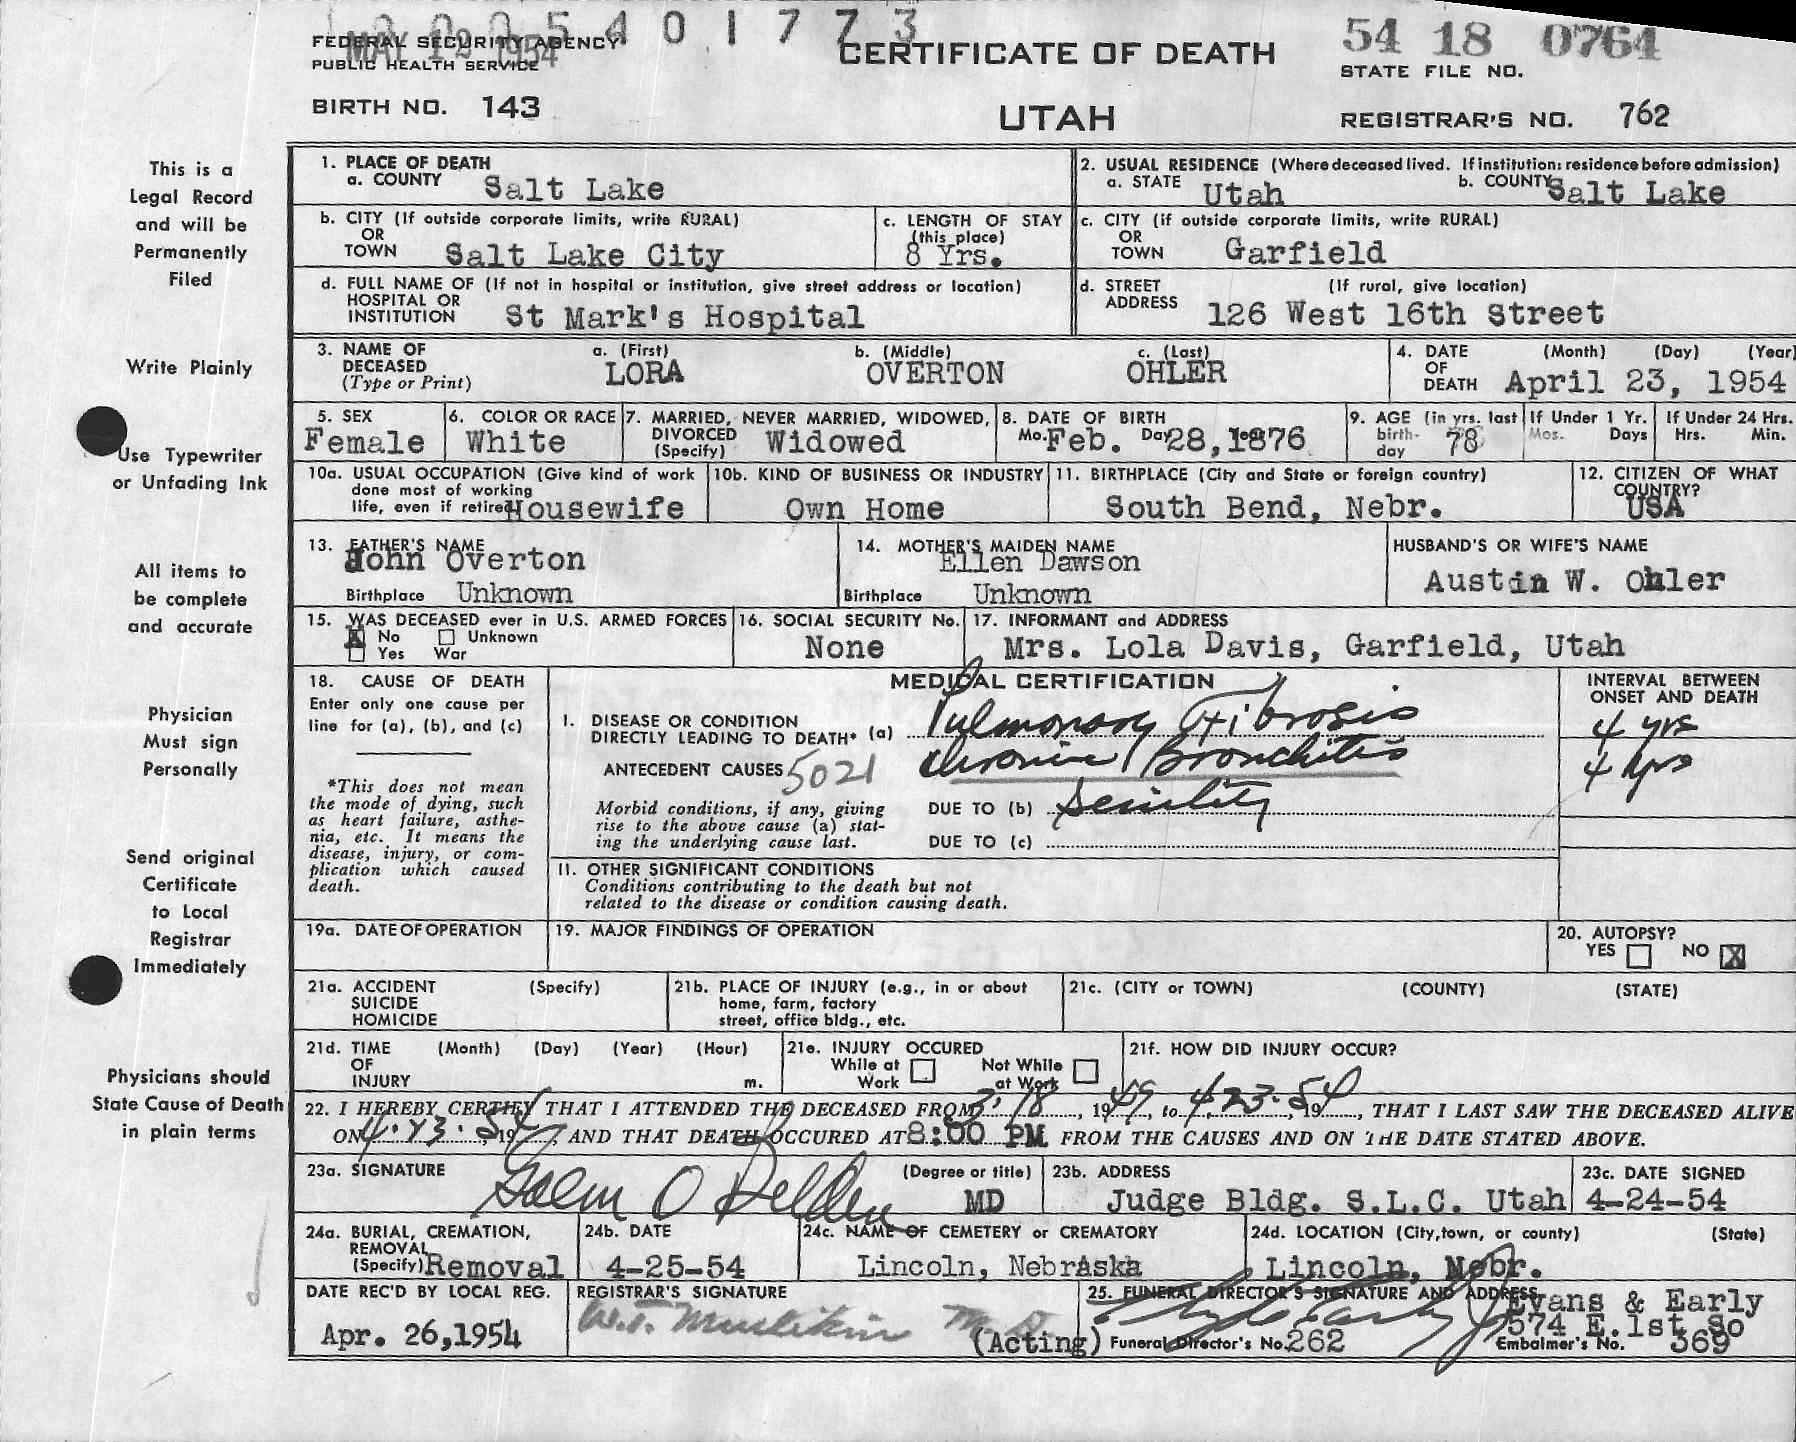 2 0 0 5 4 0 1 7 7 3
MAY 12 1954
FEDERAL SECURITY AGENCY
PUBLIC HEALTH SERVICE
CERTIFICATE OF DEATH
54 18 0764
STATE FILE NO.
BIRTH NO. 143
UTAH
REGISTRAR'S NO. 762
This is a
Legal Record
and will be
Permanently
Filed
Write Plainly
Use Typewriter
or Unfading Ink
All items to
be complete
and accurate
Physician
Must sign
Personally
Send original
Certificate
to Local
Registrar
Immediately
Physicians should
State Cause of Death
in plain terms
1. PLACE OF DEATH
a. COUNTY Salt Lake
2. USUAL RESIDENCE (Where deceased lived. If institution: residence before admission)
a. STATE Utah b. COUNTY Salt Lake
b. CITY (If outside corporate limits, write RURAL)
OR
TOWN Salt Lake City
c. LENGTH OF STAY
(this place)
8 Yrs.
c. CITY (if outside corporate limits, write RURAL)
OR
TOWN Garfield
d. FULL NAME OF (If not in hospital or institution, give street address or location)
HOSPITAL OR
INSTITUTION St Mark's Hospital
d. STREET (If rural, give location)
ADDRESS 126 West 16th Street
3. NAME OF a. (First) b. (Middle) c. (Last)
DECEASED LORA OVERTON OHLER
(Type or Print)
4. DATE (Month) (Day) (Year)
OF
DEATH April 23, 1954
5. SEX
Female
6. COLOR OR RACE
White
7. MARRIED, NEVER MARRIED, WIDOWED,
DIVORCED Widowed
(Specify)
8. DATE OF BIRTH
Mo. Feb. Day 28, 1876
9. AGE (in yrs. last
birth- 78
day
If Under 1 Yr.
Mos. Days
If Under 24 Hrs.
Hrs. Min.
10a. USUAL OCCUPATION (Give kind of work
done most of working
life, even if retired Housewife
10b. KIND OF BUSINESS OR INDUSTRY
Own Home
11. BIRTHPLACE (City and State or foreign country)
South Bend, Nebr.
12. CITIZEN OF WHAT
COUNTRY?
USA
13. FATHER'S NAME
John Overton
Birthplace Unknown
14. MOTHER'S MAIDEN NAME
Ellen Dawson
Birthplace Unknown
HUSBAND'S OR WIFE'S NAME
Austin W. Ohler
15. WAS DECEASED ever in U.S. ARMED FORCES
X No Unknown
Yes War
16. SOCIAL SECURITY No.
None
17. INFORMANT and ADDRESS
Mrs. Lola Davis, Garfield, Utah
18. CAUSE OF DEATH
Enter only one cause per
line for (a), (b), and (c)
*This does not mean
the mode of dying, such
as heart failure, asthe-
nia, etc. It means the
disease, injury, or com-
plication which caused
death.
MEDICAL CERTIFICATION
INTERVAL BETWEEN
ONSET AND DEATH
I. DISEASE OR CONDITION
DIRECTLY LEADING TO DEATH* (a) Pulmonary Fibrosis 4 yrs
ANTECEDENT CAUSES 5021 Chronic Bronchitis 4 yrs
Morbid conditions, if any, giving
rise to the above cause (a) stat-
ing the underlying cause last.
DUE TO (b) Senility
DUE TO (c)
II. OTHER SIGNIFICANT CONDITIONS
Conditions contributing to the death but not
related to the disease or condition causing death.
19a. DATE OF OPERATION
19. MAJOR FINDINGS OF OPERATION
20. AUTOPSY?
YES NO X
21a. ACCIDENT (Specify)
SUICIDE
HOMICIDE
21b. PLACE OF INJURY (e.g., in or about
home, farm, factory
street, office bldg., etc.
21c. (CITY or TOWN) (COUNTY) (STATE)
21d. TIME (Month) (Day) (Year) (Hour)
OF
INJURY m.
21e. INJURY OCCURED
While at Not While
Work at Work
21f. HOW DID INJURY OCCUR?
22. I HEREBY CERTIFY THAT I ATTENDED THE DECEASED FROM 3.18, 1949, to 4.23.54, 19, THAT I LAST SAW THE DECEASED ALIVE
ON 4.23.54, 19, AND THAT DEATH OCCURED AT 8:00 PM FROM THE CAUSES AND ON THE DATE STATED ABOVE.
23a. SIGNATURE (Degree or title)
MD
23b. ADDRESS
Judge Bldg. S.L.C. Utah
23c. DATE SIGNED
4-24-54
24a. BURIAL, CREMATION,
REMOVAL
(Specify) Removal
24b. DATE
4-25-54
24c. NAME OF CEMETERY or CREMATORY
Lincoln, Nebraska
24d. LOCATION (City, town, or county) (State)
Lincoln, Nebr.
DATE REC'D BY LOCAL REG.
Apr. 26, 1954
REGISTRAR'S SIGNATURE
(Acting)
25. FUNERAL DIRECTOR'S SIGNATURE AND ADDRESS
Evans & Early
574 E. 1st So
Funeral Director's No. 262
Embalmer's No. 369